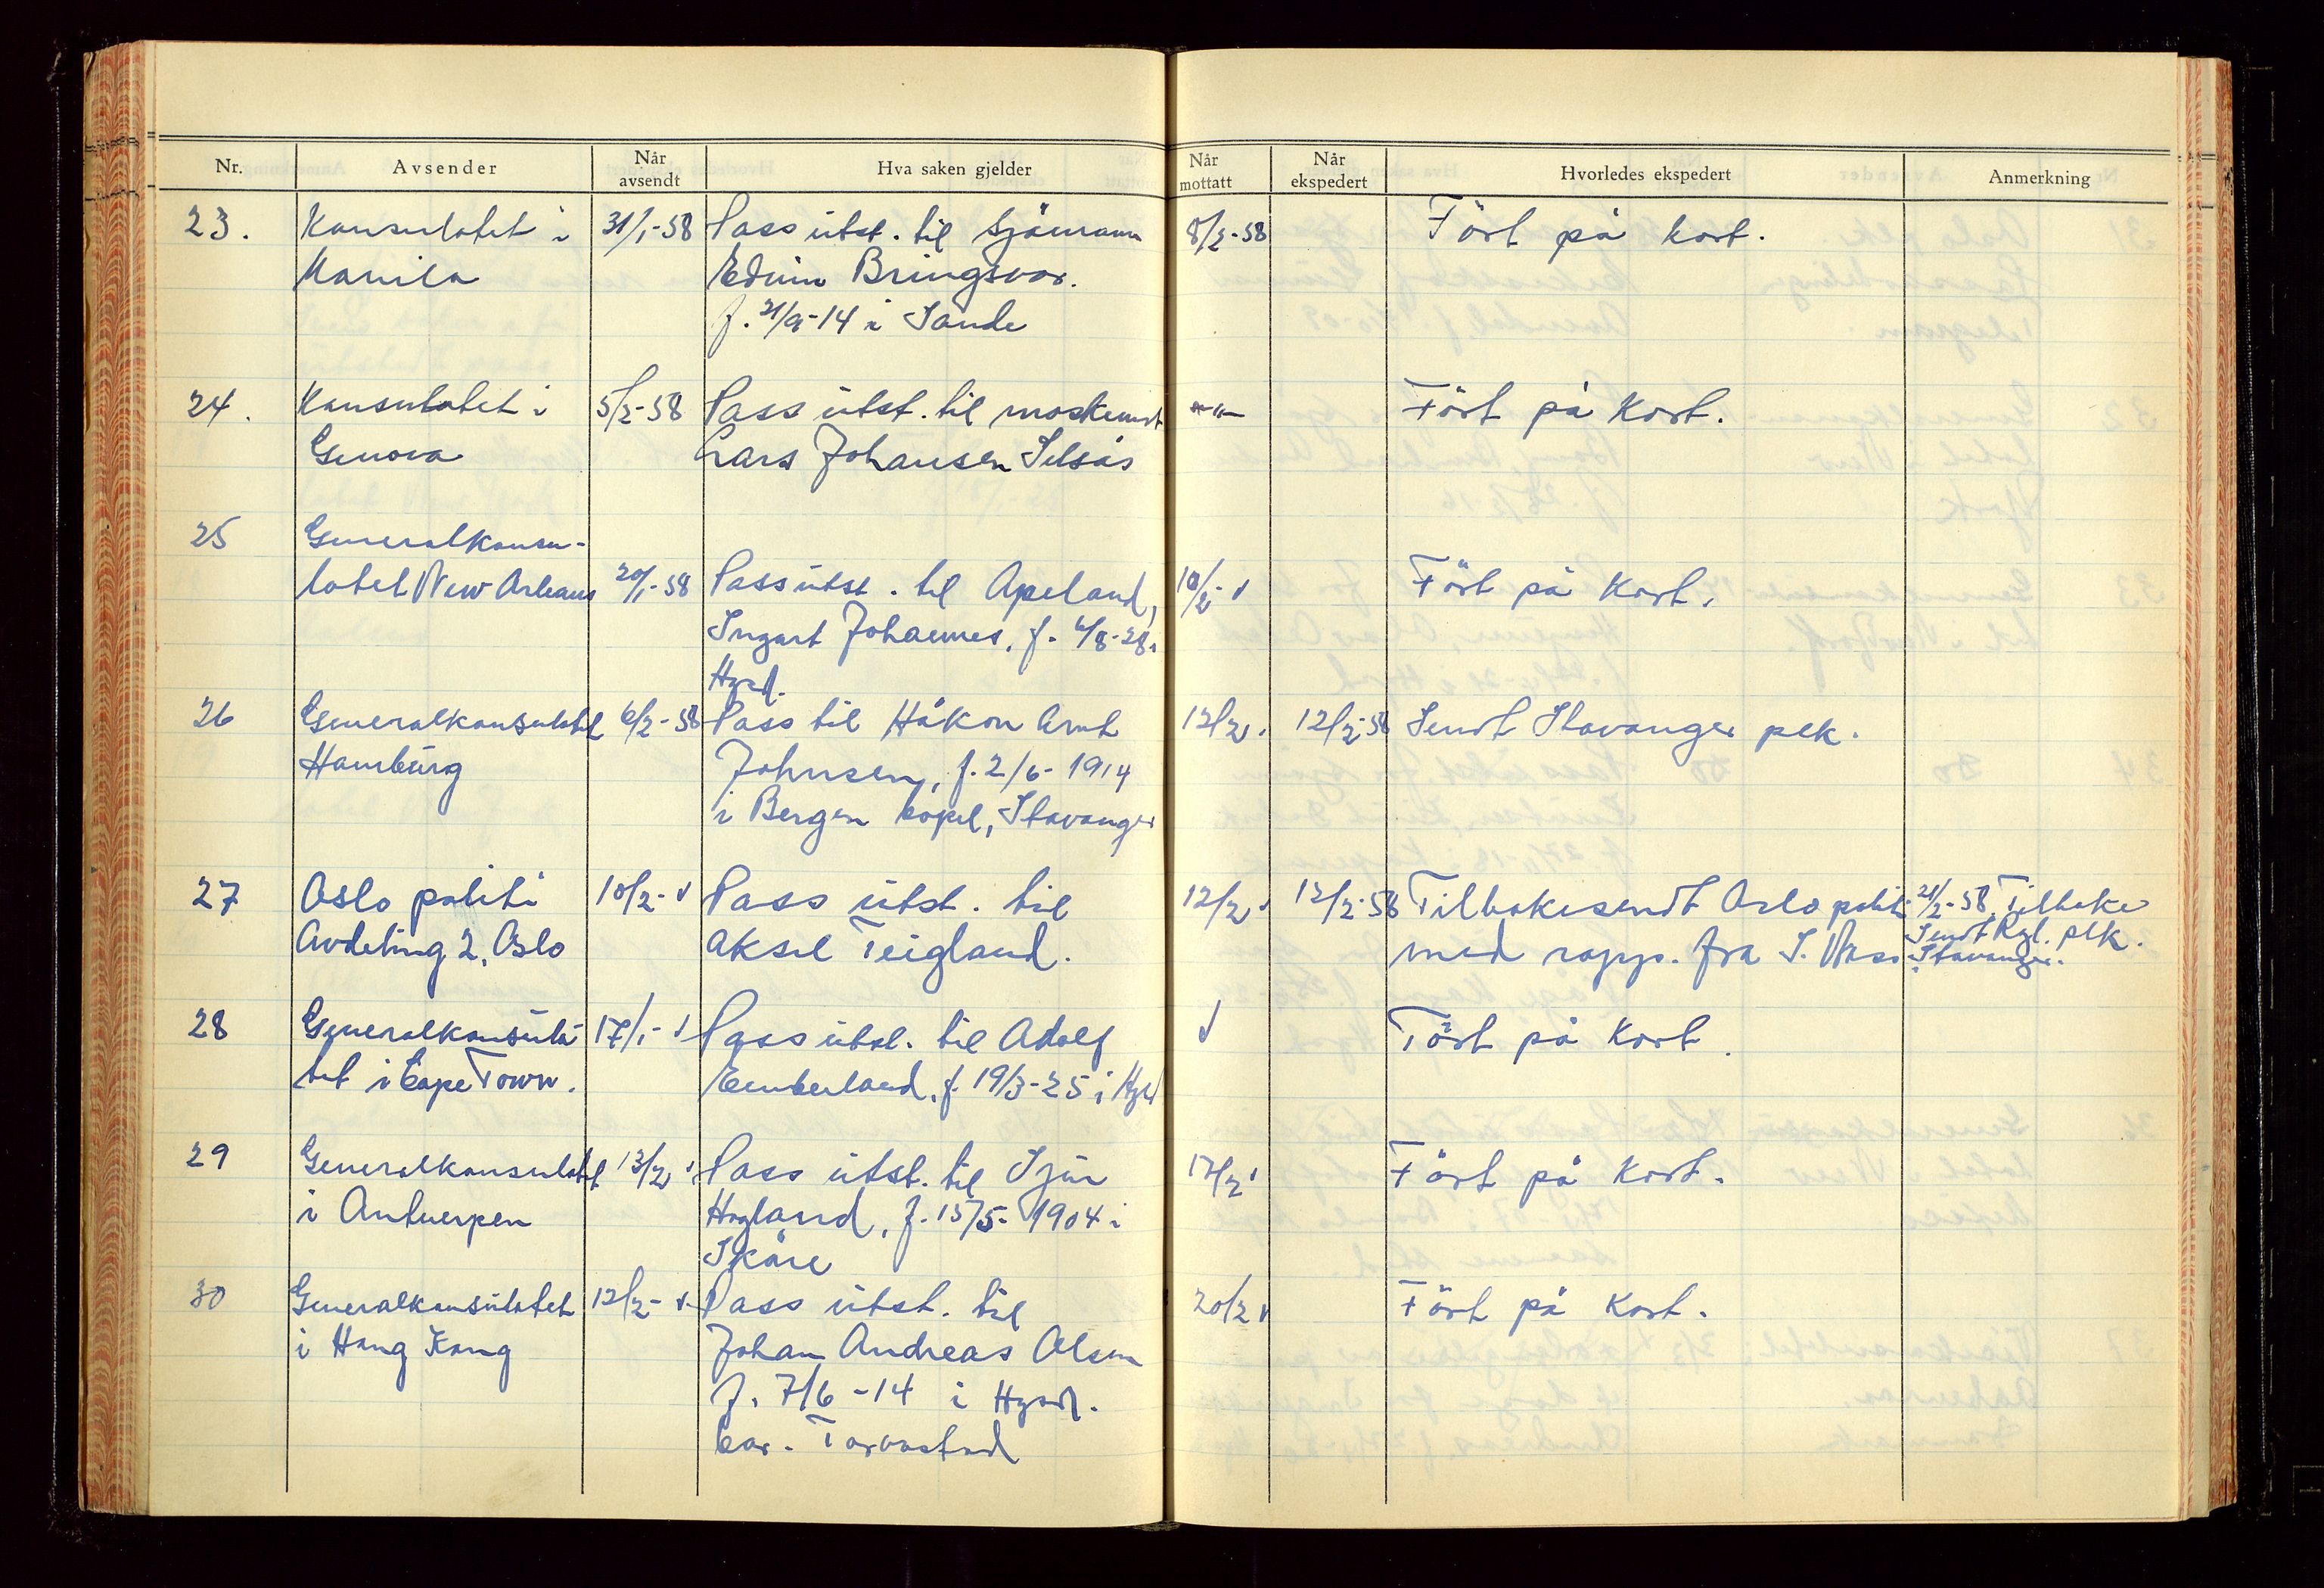 Nr. Avsender Når avsendt Hva saken gjelder Når mottatt Når ekspedert Hvorledes ekspedert Anmerkning
23. Konsulatet i 31/1-58 Pass utst. til Sjømann 8/2-58 Ført på kort.
Manila Edvin Bringsvor.
f. 21/9-14 i Sande
24. Konsulatet i 5/2-58 Pass utst. til maskinist -"- Ført på Kort.
Genova Lars Johansen Selsås
25 Generalkonsu-
latet New Orleans 20/1-58 Pass utst. til Apeland, 10/2- Ført på Kort.
Johannes, f. 6/8-28 i
Hgsd.
26 Generalkonsulatet 6/2-58 Pass til Håkon Arnt 12/2. 12/2-58 Sendt Stavanger plk.
Hamburg Johnsen, f. 2/6-1914
i Bergen bopel, Stavanger
27 Oslo politi 10/2- Pass utst. til 12/2 12/2-58 Tilbakesendt Oslo politi 21/2-58 Tilbake
Avdeling 2, Oslo Aksel Teigland. med rapp. fra S. Næss Sendt Rgl. plk.
Stavanger.
28 Generalkonsula 17/1- Pass utst. til Adolf Ført på Kort.
tet i Cape Town. Emberland, f. 19/3-25 i Hgsd
29 Generalkonsulatet 13/2 Pass utst. til Sjur 17/2 Ført på Kort.
i Antwerpen Hagland, f. 15/5-1904 i
Skåre
30 Generalkonsulatet 12/2- Pass utst. til 20/2 Ført på Kort.
i Hong Kong Johan Andreas Olsen
f. 7/6-14 i Hgsd.
Torvastad